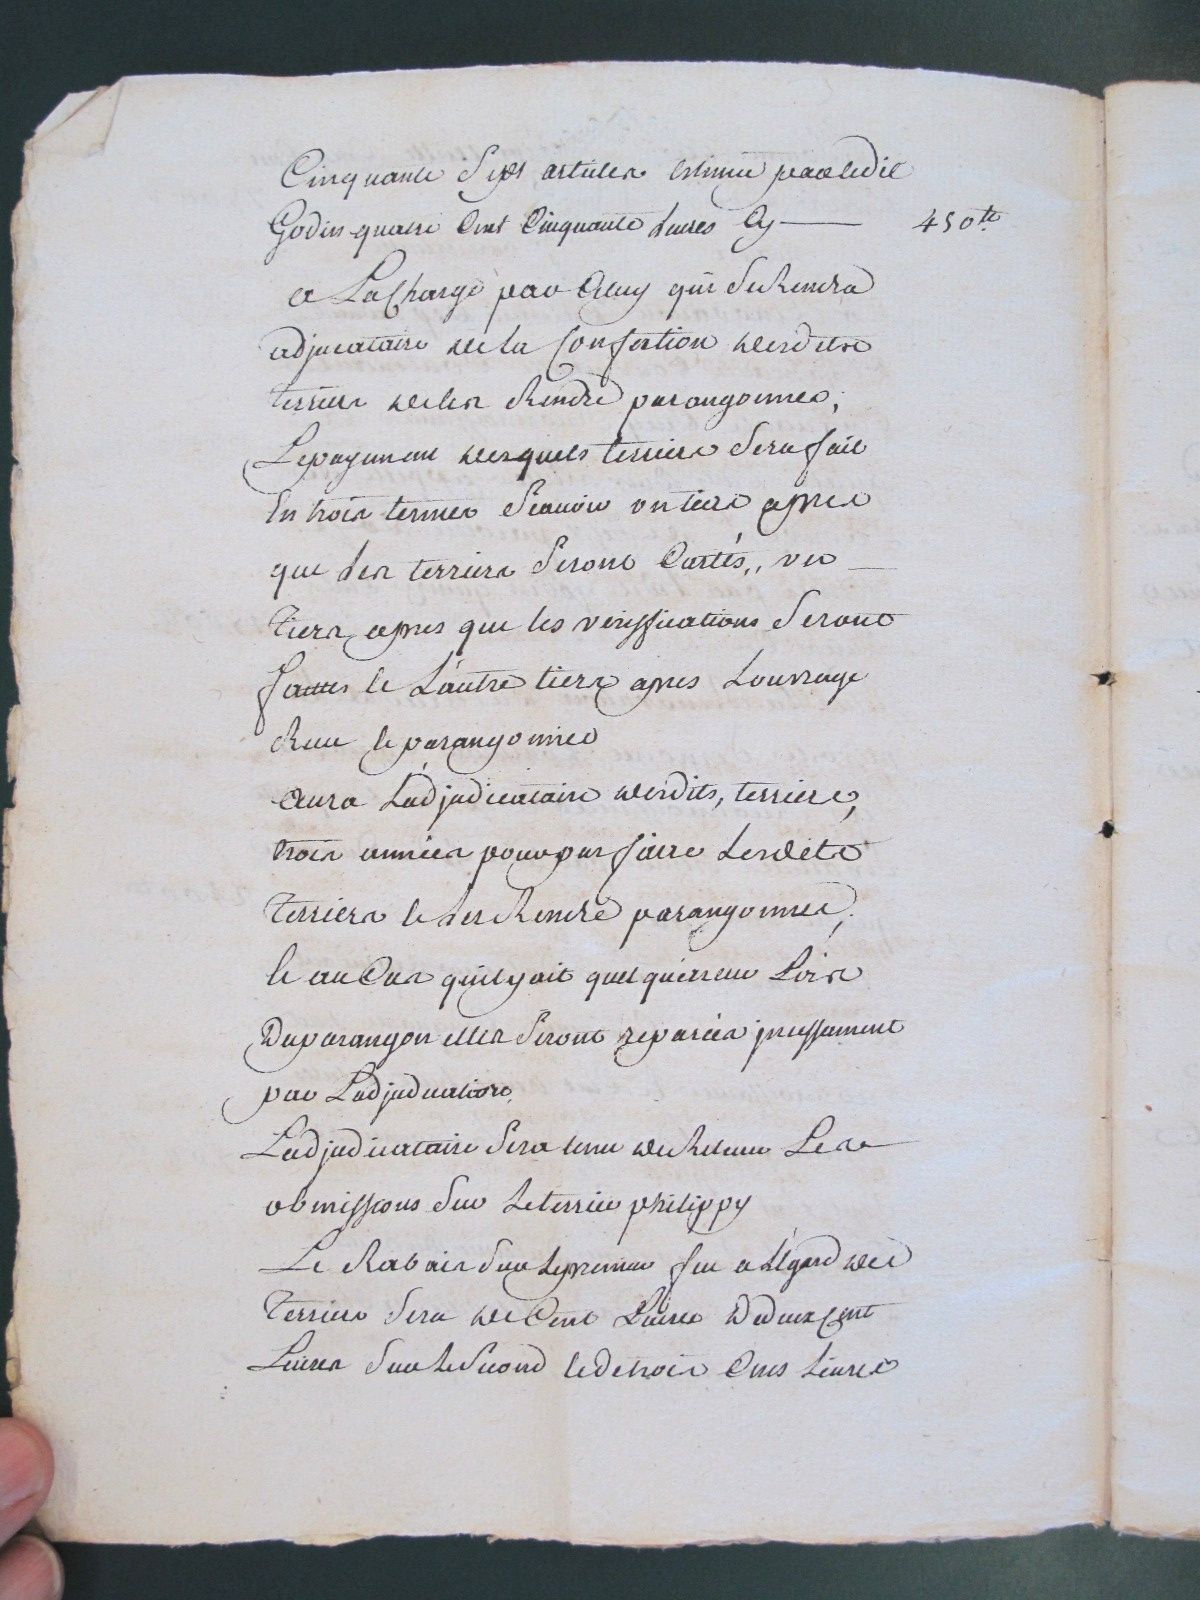 Cinquante Sept articles Estimé par ledit
Godin quatre Cent Cinquante Livres Cy — 450 tt
a La Charge par Celuy qui Se Rendra
adjucataire de la Confection desdits
terriers de les Rendre parangonnes,
Le payement desquels terriers Sera fait
En trois termes Scauoir un tiers apres
que Les terriers Seront Cartés,, un —
Tiers apres que les veriffications Seront
faittes Et L'autre tiers apres Louvrage
Rendu Et parangonnes
Aura L'adjudicataire desdits, terriers,
trois années pour parfaire Lesdits
Terriers Et Les Rendre parangonnes,
Et au Cas quil y ait quelqu'erreur Lors
Du parangon elles Seront reparées jncessament
par Ladjudicataire,
L'adjudicataire Sera tenu de Relever Les
obmissions Sur Le terrier philippy
Le Rabais Sur Le premier feu a L'égard des
Terriers Sera de Cent Livres De deux Cent
Livres Sur Le Second Et de trois Cens Livres